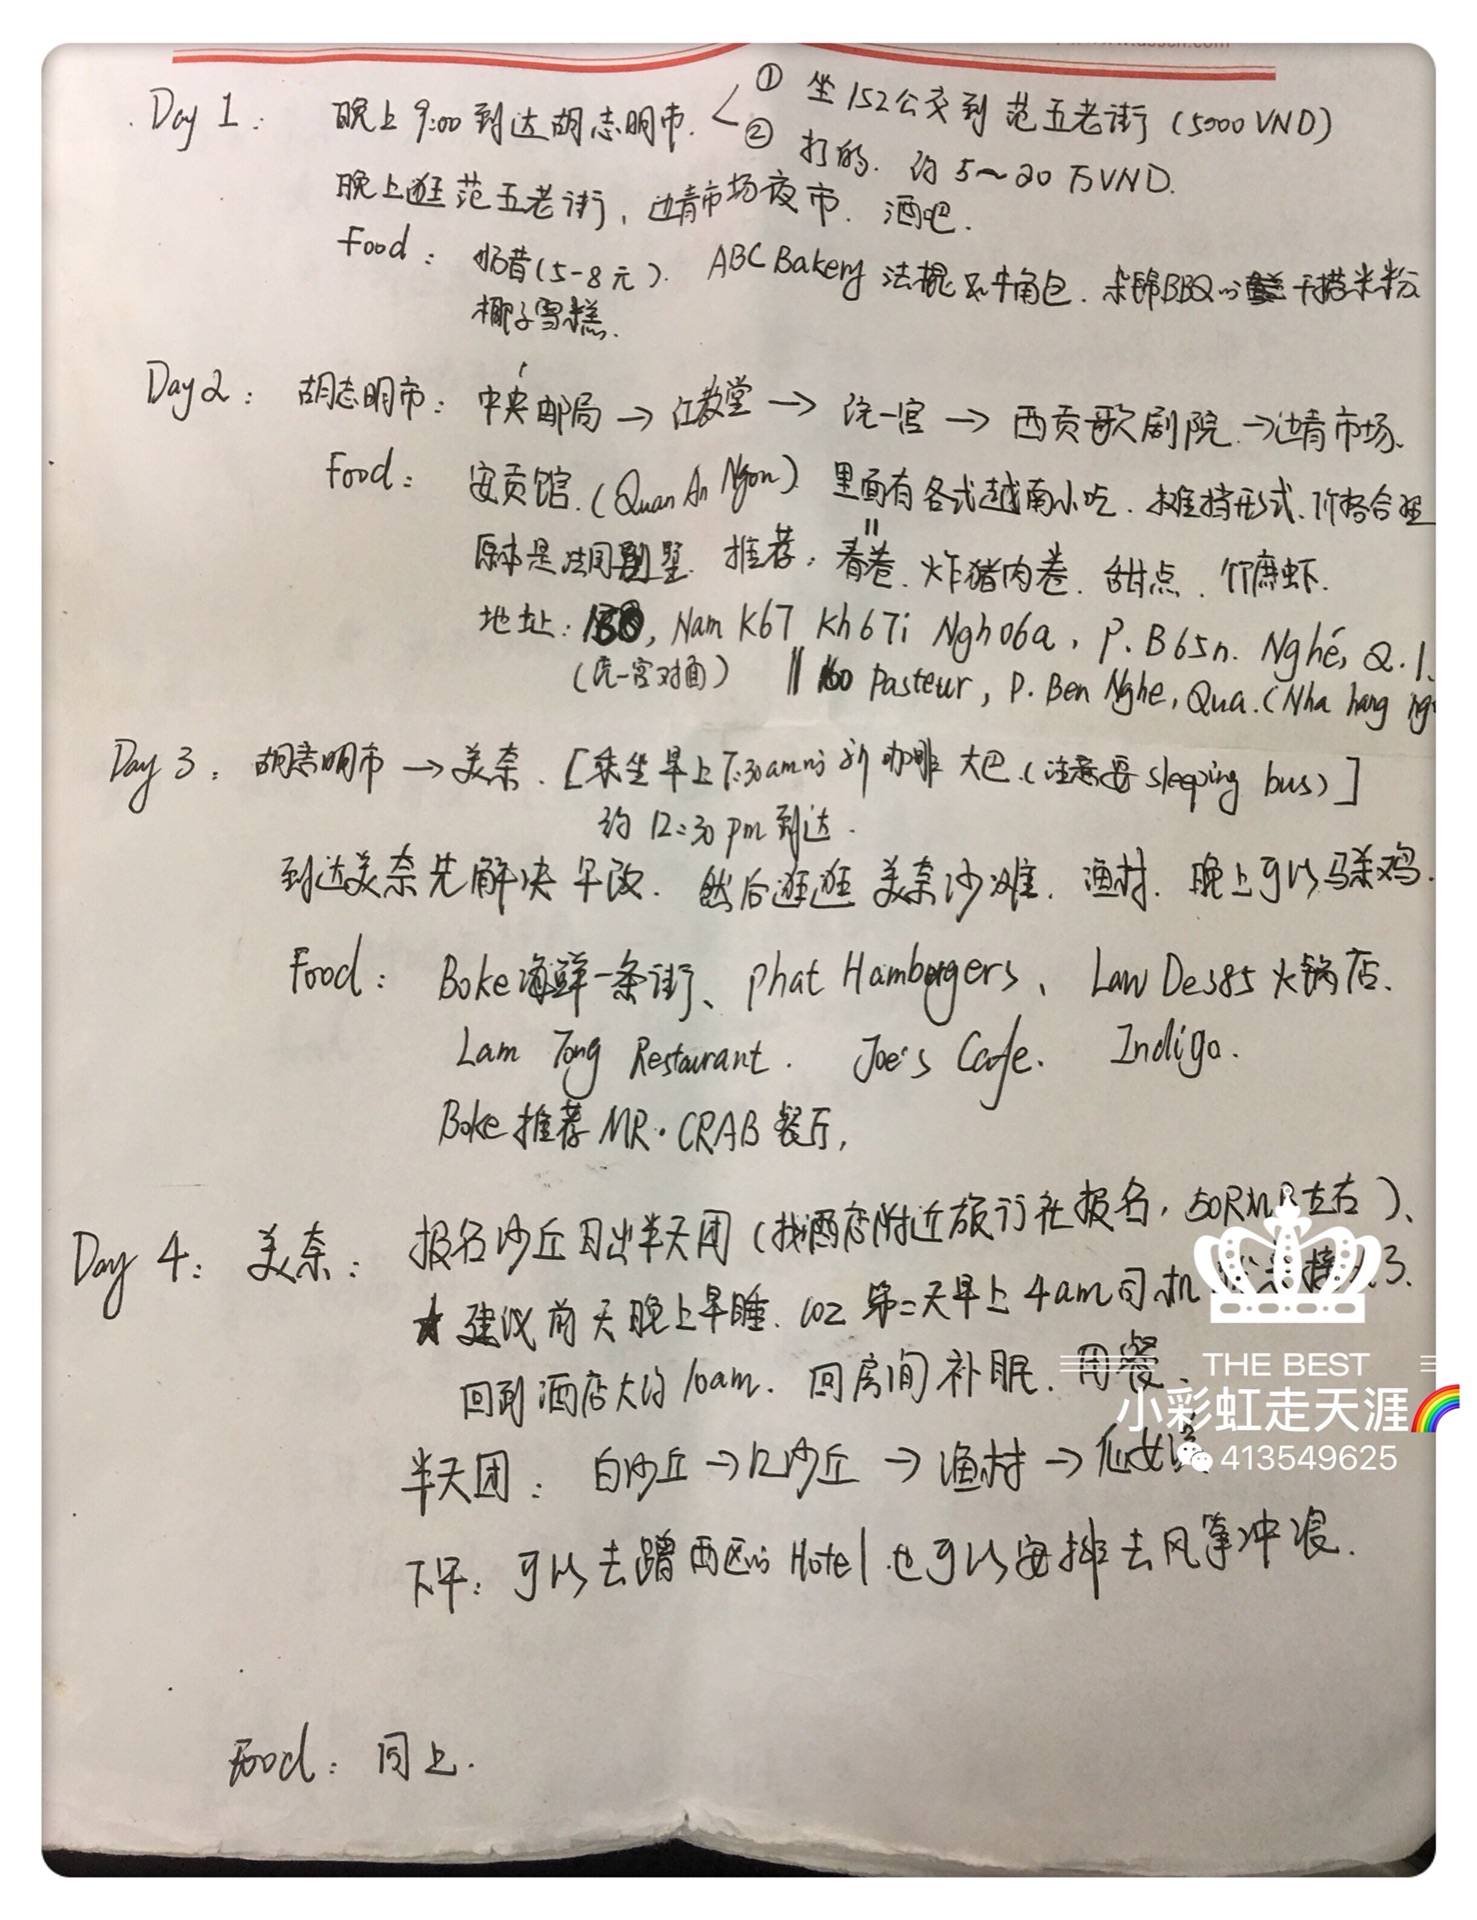 Day 1: 晚上9:00到达胡志明市. ① 坐152公交到范五老街 (5000 VND)
② 打的. 约5~20万VND.
晚上逛范五老街, 边青市场夜市. 酒吧.
Food: 奶昔(5-8元). ABC Bakery 法棍和牛角包. 杂锦BBQ的 干捞米粉
椰子雪糕.
Day 2: 胡志明市: 中央邮局→红教堂→统一宫→西贡歌剧院.→边青市场.
Food: 安贡馆.(Quan An Ngon) 里面有各式越南小吃. 摊档形式、价格合理
原本是法国别墅. 推荐: 春卷. 炸猪肉卷. 甜点. 竹蔗虾.
地址: 138, Nam K67 Kh67i Ngh06a, P. B65n. Nghé, Q.1.
(统一宫对面) 160 Pasteur, P. Ben Nghe, Qua.(Nha hang ng
Day 3: 胡志明市→美奈. [乘坐早上7:30am的新咖啡大巴.(注意要sleeping bus)]
约12:30pm到达.
到达美奈先解决午饭. 然后逛逛美奈沙滩. 渔村. 晚上可以杀鸡.
Food: Boke海鲜一条街、Phat Hambergers、Law Des85火锅店.
Lam Tong Restaurant. Joe's Cafe. Indigo.
Boke推荐MR·CRAB餐厅,
Day 4: 美奈: 报名沙丘日出半天团 (找酒店附近旅行社报名, 50RMB左右)、
★建议前天晚上早睡. coz 第二天早上4am司机
回到酒店大约10am. 回房间补眠. 用餐.
半天团: 白沙丘→红沙丘→渔村→仙女溪
下午: 可以去蹭西区的Hotel.也可以安排去风筝冲浪.
Food: 同上.
THE BEST
小彩虹走天涯🌈
413549625